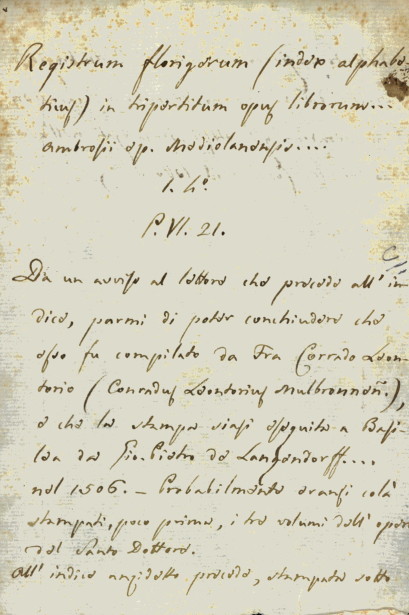 Registrum florigerum (index alphabe-
ticus) in tripartitum opus librorum...
Ambrosii ep. Mediolanensis....
1. h°.
P. VI. 21.
Da un avviso al lettore che precede all' in-
dice, parmi di poter conchiudere che
esso fu compilato da Fra Corrado Leon-
torio (Conradus Leontorius Mulbronneñ.),
e che la stampa siasi eseguita a Basi-
lea da Gio. Pietro de Langendorff....
nel 1506. - Probabilmente eransi colà
stampati, poco prima, i tre volumi dell' opera
del Santo Dottore.
All' indice anzidetto precede, stampata sotto